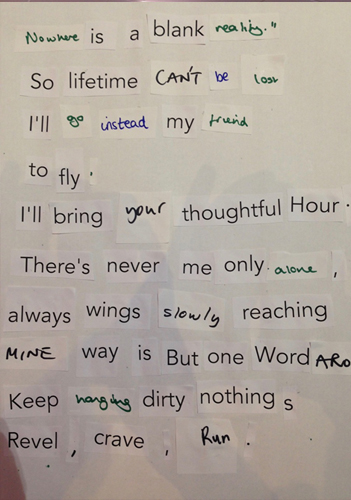 Nowhere is a blank reality."
So lifetime CAN'T be lost
I'll go instead my friend
to fly.
I'll bring your thoughtful Hour.
There's never me only alone,
always wings slowly reaching
MINE way is But one Word ARO
Keep hanging dirty nothing s
Revel, crave, Run.